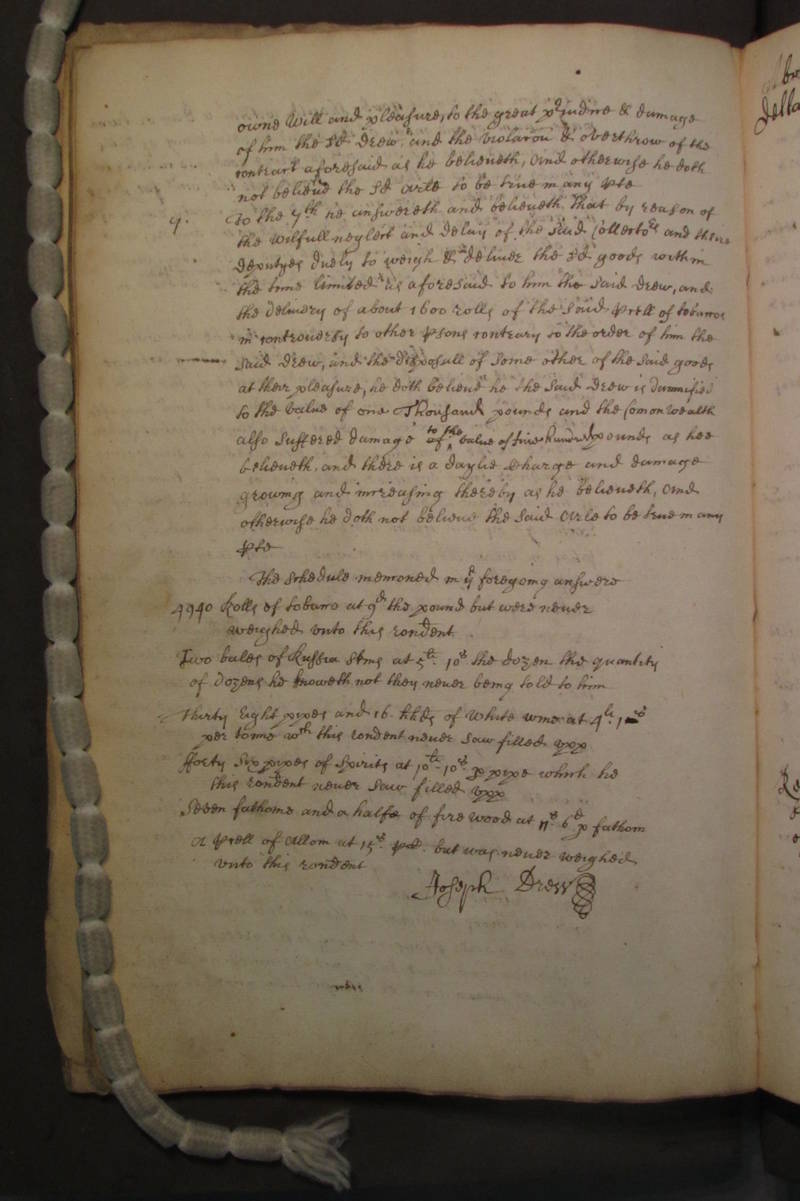 owne will and pleasure, to the great p^rjudice & damage
of him the s^d Drew, and the violacon & overthrow of the
contract aforesaid as he believeth, And otherwise he doth
not believe the s^d Arle to be true in any pte
7. To the 7^th he answereth and believeth, That by reason of
the wilfull neglect and delay of the said Collecto^rs and theire
Deputyes duely to weigh & deliver the s^d goods within
the time limited as aforesaid to him the said Drew, and
the delivery of about 1600 rolls of the said prcell of tobacco
in controversy to other psons contrary to the order of him the
said Drew, and the disposall of some other of the said goods
at their pleasure, he doth believe he the said Drew is damnified
to the value of one Thousand pounds and the Comon wealth
also suffered damage to the value of five hundred pounds as hee
believeth, and there is a daylie charge and damage
growing and increasing thereby as he believeth, And
otherwise he doth not believe the said Arle to be true in any
pte
The schedule menconed in y^e foregoing answere
4940 Rolls of tobacco at 9^d the pound but were never
weighed unto this rondent
Two bales of Russia skins at 5^li 10^s the dozen the quantity
of dozens he knoweth not they never being told to him
Thirty Eight pypes and 16 hhds of white wine at 4^li
per tonne w^ch this rondent never saw filled upp
fforty Six pypes of Spirits at 10^li 10^s p pype which he
this rondent never saw filled upp
Seven fathome and a halfe of fire wood at 11^s 6^d p fathom
A prcell of Allom at 15^s but was never weighed
unto this rondent
Joseph Drew